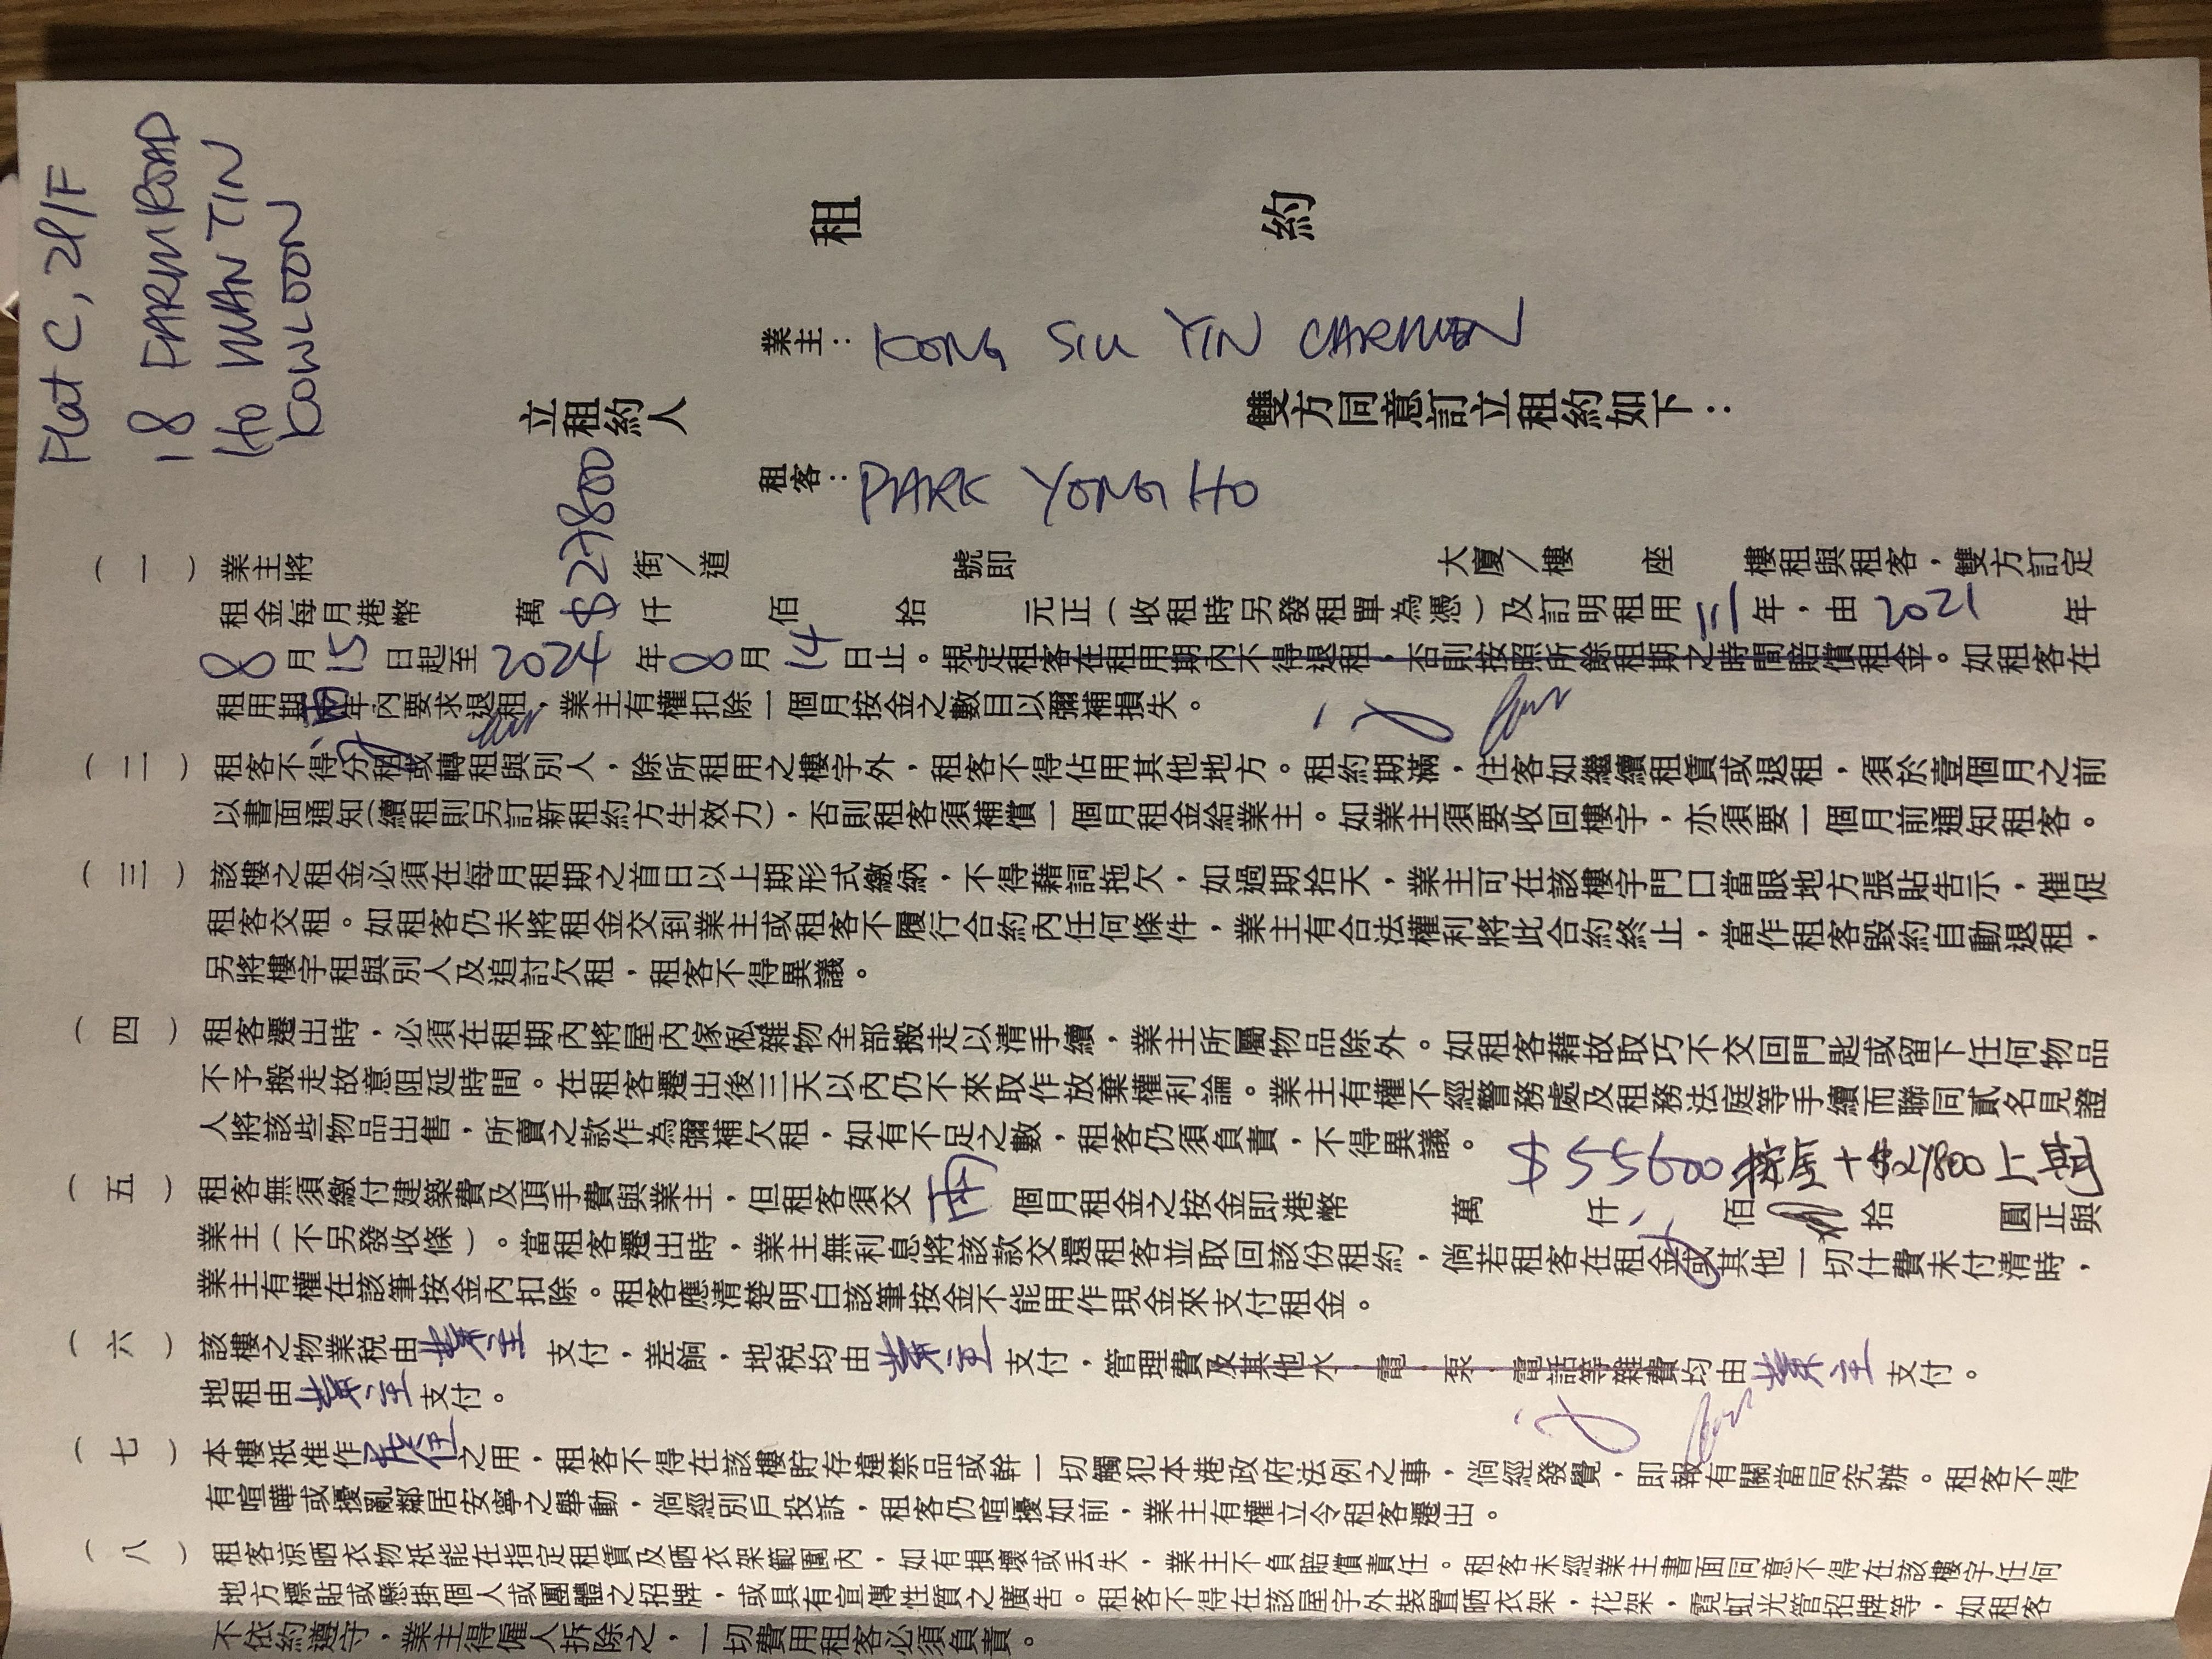 Flat C, 21/F
18 FARM ROAD
HO MAN TIN
KOWLOON
租約
業主：TONG SIU YIN CARMEN
立租約人
雙方同意訂立租約如下：
租客：PARK YONG HO
（一）業主將 街／道 號即 大廈／樓 座 樓租與租客，雙方訂定
租金每月港幣 萬 $27800 仟 佰 拾 元正（收租時另發租單為憑）及訂明租用三年，由2021年
8月15日起至2024年8月14日止。規定租客在租用期內不得退租，否則按照所餘租期之時間賠償租金。如租客在
租用期兩年內要求退租，業主有權扣除一個月按金之數目以彌補損失。
（二）租客不得分租或轉租與別人，除所租用之樓宇外，租客不得佔用其他地方。租約期滿，住客如繼續租賃或退租，須於壹個月之前
以書面通知(續租則另訂新租約方生效力)，否則租客須補償一個月租金給業主。如業主須要收回樓宇，亦須要一個月前通知租客。
（三）該樓之租金必須在每月租期之首日以上期形式繳納，不得藉詞拖欠，如過期拾天，業主可在該樓宇門口當眼地方張貼告示，催促
租客交租。如租客仍未將租金交到業主或租客不履行合約內任何條件，業主有合法權利將此合約終止，當作租客毀約自動退租，
另將樓宇租與別人及追討欠租，租客不得異議。
（四）租客遷出時，必須在租期內將屋內傢俬雜物全部搬走以清手續，業主所屬物品除外。如租客藉故取巧不交回門匙或留下任何物品
不予搬走故意阻延時間。在租客遷出後三天以內仍不來取作放棄權利論。業主有權不經警務處及租務法庭等手續而聯同貳名見證
人將該些物品出售，所賣之款作為彌補欠租，如有不足之數，租客仍須負責，不得異議。
$55600
（五）租客無須繳付建築費及頂手費與業主，但租客須交兩個月租金之按金即港幣 萬 仟 佰 拾 圓正與
業主（不另發收條）。當租客遷出時，業主無利息將該款交還租客並取回該份租約，倘若租客在租金或其他一切什費未付清時，
業主有權在該筆按金內扣除。租客應清楚明白該筆按金不能用作現金來支付租金。
（六）該樓之物業税由業主支付，差餉，地税均由業主支付，管理費及其他水，電，泵，電話等雜費均由業主支付。
地租由業主支付。
（七）本樓祇准作居住之用，租客不得在該樓貯存違禁品或幹一切觸犯本港政府法例之事，倘經發覺，即報有關當局究辦。租客不得
有喧嘩或擾亂鄰居安寧之舉動，倘經別戶投訴，租客仍喧擾如前，業主有權立令租客遷出。
（八）租客涼晒衣物祇能在指定租賃及晒衣架範圍內，如有損壞或丟失，業主不負賠償責任。租客未經業主書面同意不得在該樓宇任何
地方標貼或懸掛個人或團體之招牌，或具有宣傳性質之廣告。租客不得在該屋宇外裝置晒衣架，花架，霓虹光管招牌等，如租客
不依約遵守，業主得僱人拆除之，一切費用租客必須負責。